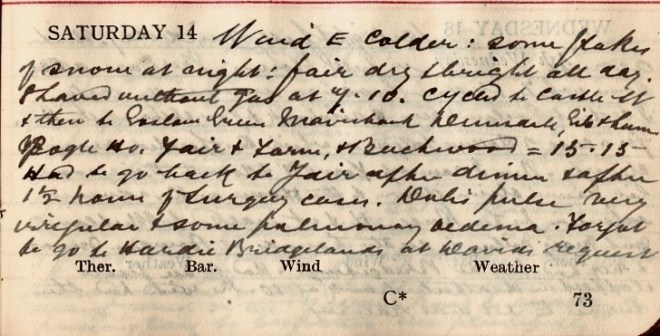 SATURDAY 14 Wind E colder: some flakes
of snow at night: fair dry & bright all day.
Shaved without gas at 7.10. Cycled to Castle St
& then to Green Mavisbank
Ho. Fair & Farm, & Beechwood = 15.15
Had to go back to Fair after dinner & after
1½ hours of surgery cases. pulse very
irregular & some pulmonary oedema. Forgot
to go to Hardie Bridgelands at Davids request
Ther. Bar. Wind Weather
C* 73